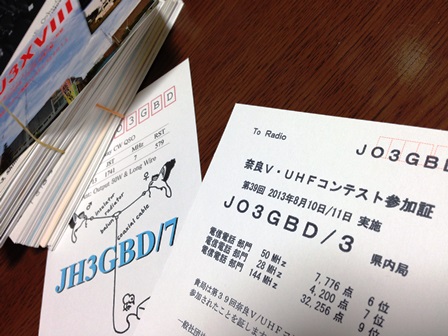 J3XVIII
JO3GBD
CW QSO
MHz RST
1741 7 579
Output 50W & Long Wire
insulator
radiator
coaxial cable
JH3GBD/7
To Radio JO3GBD
奈良V・UHFコンテスト参加証
第39回 2013年8月10日/11日 実施
JO3GBD/3 県内局
電信電話 部門 50 MHz 7,776 点 6位
電信電話 部門 28 MHz 4,200 点 7位
電信電話 部門 144 MHz 32,256 点 9位
貴局は第39回奈良V/UHFコ
参加されたことを証します
一般社団